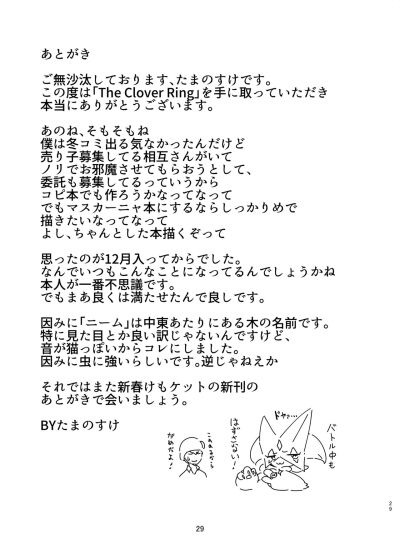 あとがき
ご無沙汰しております、たまのすけです。
この度は「The Clover Ring」を手に取っていただき
本当にありがとうございます。
あのね、そもそもね
僕は冬コミ出る気なかったんだけど
売り子募集してる相互さんがいて
ノリでお邪魔させてもらおうとして、
委託も募集してるっていうから
コピ本でも作ろうかなってなって
でもマスカーニャ本にするならしっかりめで
描きたいなってなって
よし、ちゃんとした本描くぞって
思ったのが12月入ってからでした。
なんでいつもこんなことになってるんでしょうかね
本人が一番不思議です。
でもまあ良くは満たせたんで良しです。
因みに「ニーム」は中東あたりにある木の名前です。
特に見た目とか良い訳じゃないんですけど、
音が猫っぽいからコレにしました。
因みに虫に強いらしいです。逆じゃねえか
それではまた新春けもケットの新刊の
あとがきで会いましょう。
BYたまのすけ
バトル中も
ドヤァ…
はずさない!
29
29